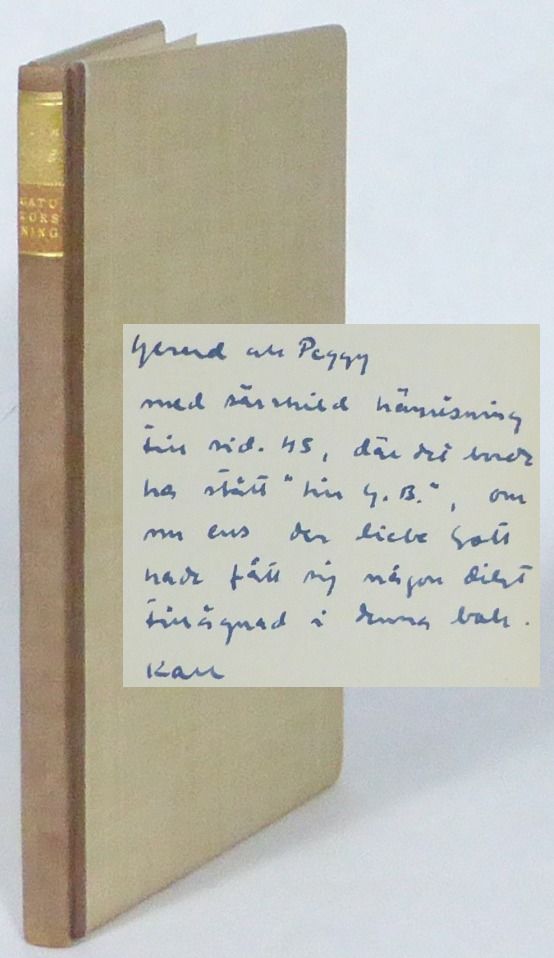 GATU
KORS
NING
Gerard och Peggy
med särskild hänvisning
till sid. 45, där det borde
ha stått "till G. B.", om
nu ens der liebe Gott
hade fått sig någon dikt
tillägnad i denna bok.
Karl